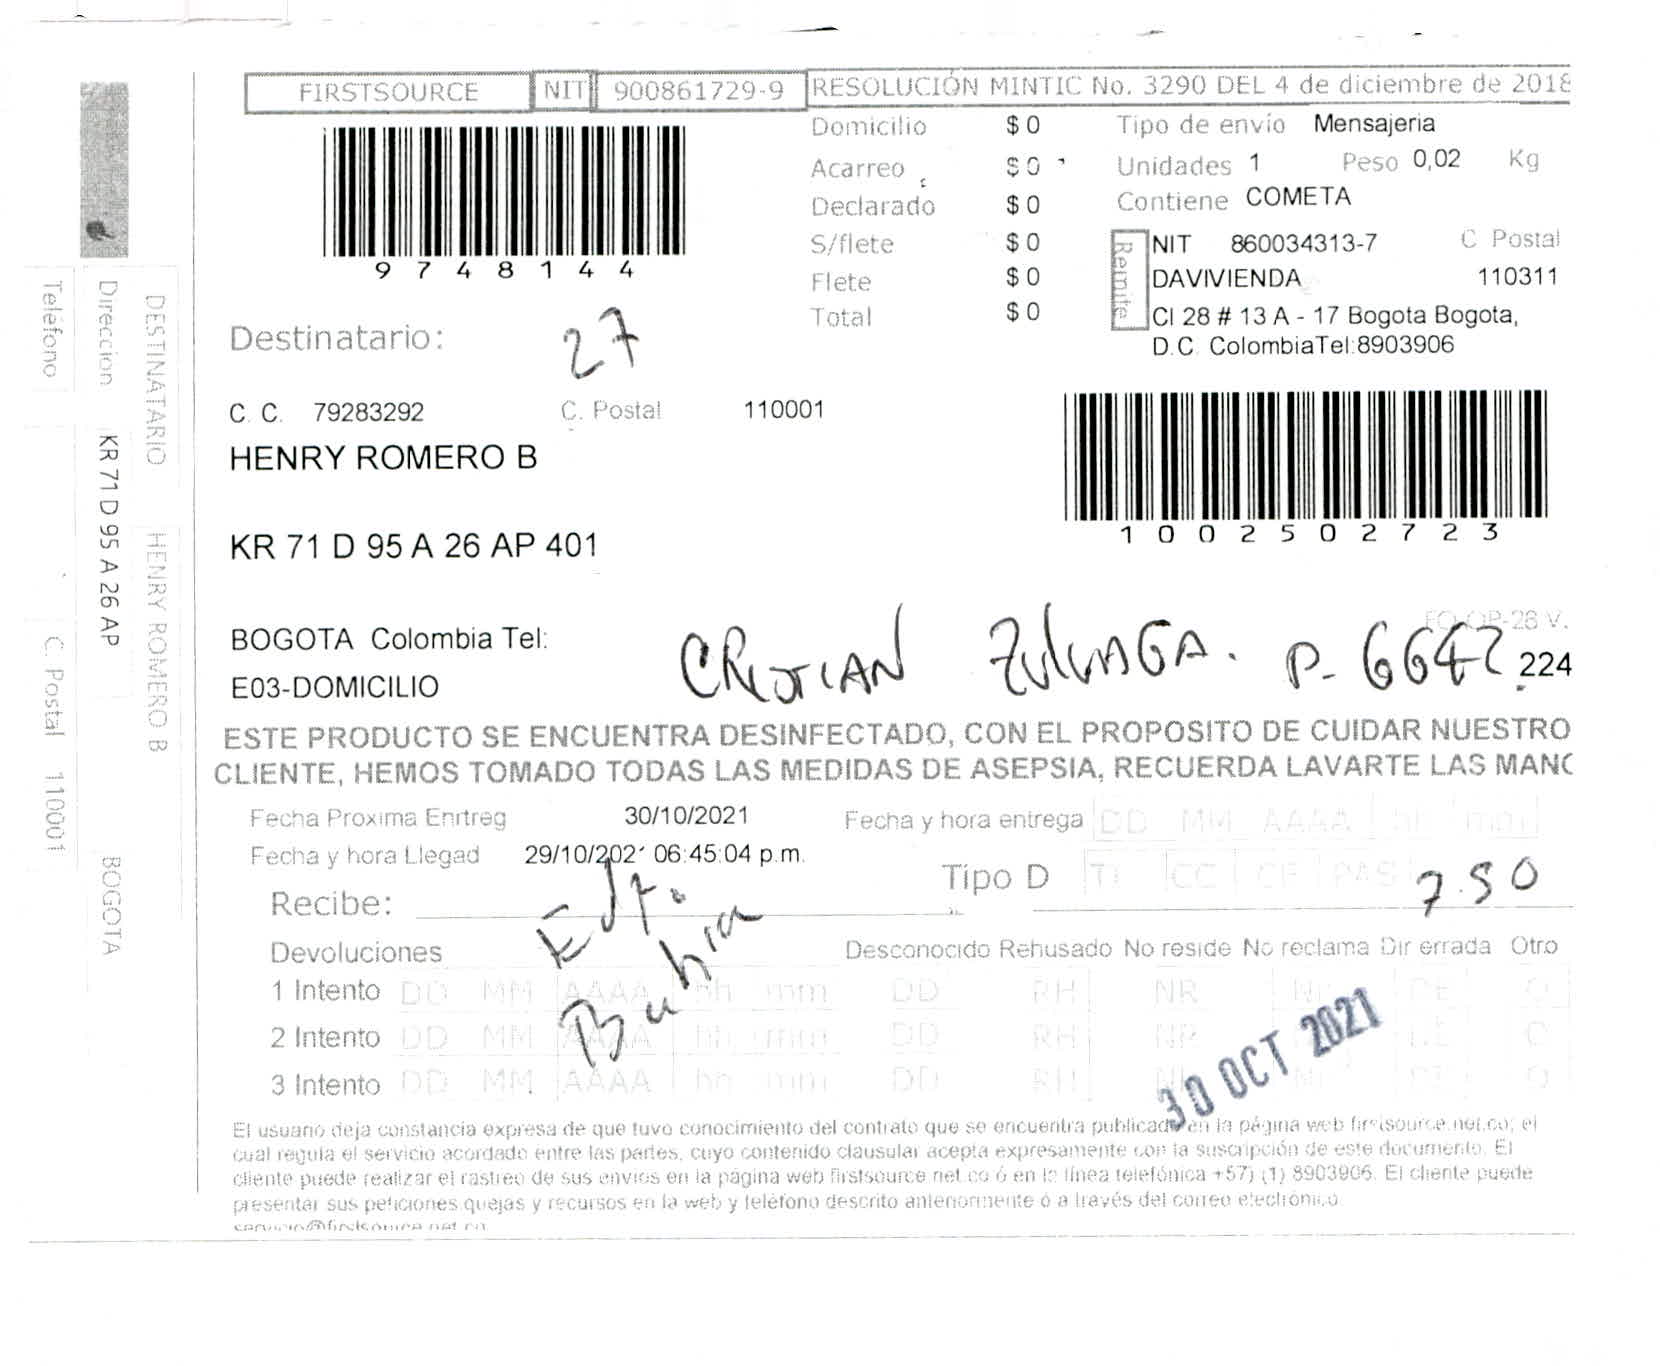 FIRSTSOURCE NIT 900861729-9 RESOLUCIÓN MINTIC No. 3290 DEL 4 de diciembre de 2018
9748144
Domicilio $ 0
Acarreo $ 0
Declarado $ 0
S/flete $ 0
Flete $ 0
Total $ 0
Tipo de envío Mensajeria
Unidades 1 Peso 0,02 Kg
Contiene COMETA
Remite
NIT 860034313-7 C Postal
DAVIVIENDA 110311
Cl 28 # 13 A - 17 Bogota Bogota,
D.C. Colombia Tel:8903906
Destinatario:
27
C. C. 79283292 C. Postal 110001
HENRY ROMERO B
1002502723
KR 71 D 95 A 26 AP 401
FO-OP-28 V.
BOGOTA Colombia Tel:
CRISTIAN ZULUAGA. P- 6642
224
E03-DOMICILIO
ESTE PRODUCTO SE ENCUENTRA DESINFECTADO, CON EL PROPOSITO DE CUIDAR NUESTRO
CLIENTE, HEMOS TOMADO TODAS LAS MEDIDAS DE ASEPSIA, RECUERDA LAVARTE LAS MANO
Fecha Proxima Entreg 30/10/2021 Fecha y hora entrega DD MM AAAA hh mm
Fecha y hora Llegad 29/10/2021 06:45:04 p.m.
Tipo D TI CC CE PAS 7.50
Recibe:
Edf.
Bahia
Devoluciones Desconocido Rehusado No reside No reclama Dir errada Otro
1 Intento DD MM AAAA hh mm DD RH NR NR DE O
2 Intento DD MM AAAA hh mm DD RH NR DE O
3 Intento DD MM AAAA hh mm DD RH NR NR DE O
30 OCT 2021
El usuario deja constancia expresa de que tuvo conocimiento del contrato que se encuentra publicado en la página web firstsource.net.co; el
cual regula el servicio acordado entre las partes, cuyo contenido clausular acepta expresamente con la suscripción de este documento. El
cliente puede realizar el rastreo de sus envios en la página web firstsource.net.co ó en la línea telefónica +57) (1) 8903906. El cliente puede
presentar sus peticiones quejas y recursos en la web y teléfono descrito anteriormente ó a través del correo electrónico
servicio@firstsource.net.co
DESTINATARIO HENRY ROMERO B
Direccion KR 71 D 95 A 26 AP BOGOTA
Teléfono C. Postal 110001